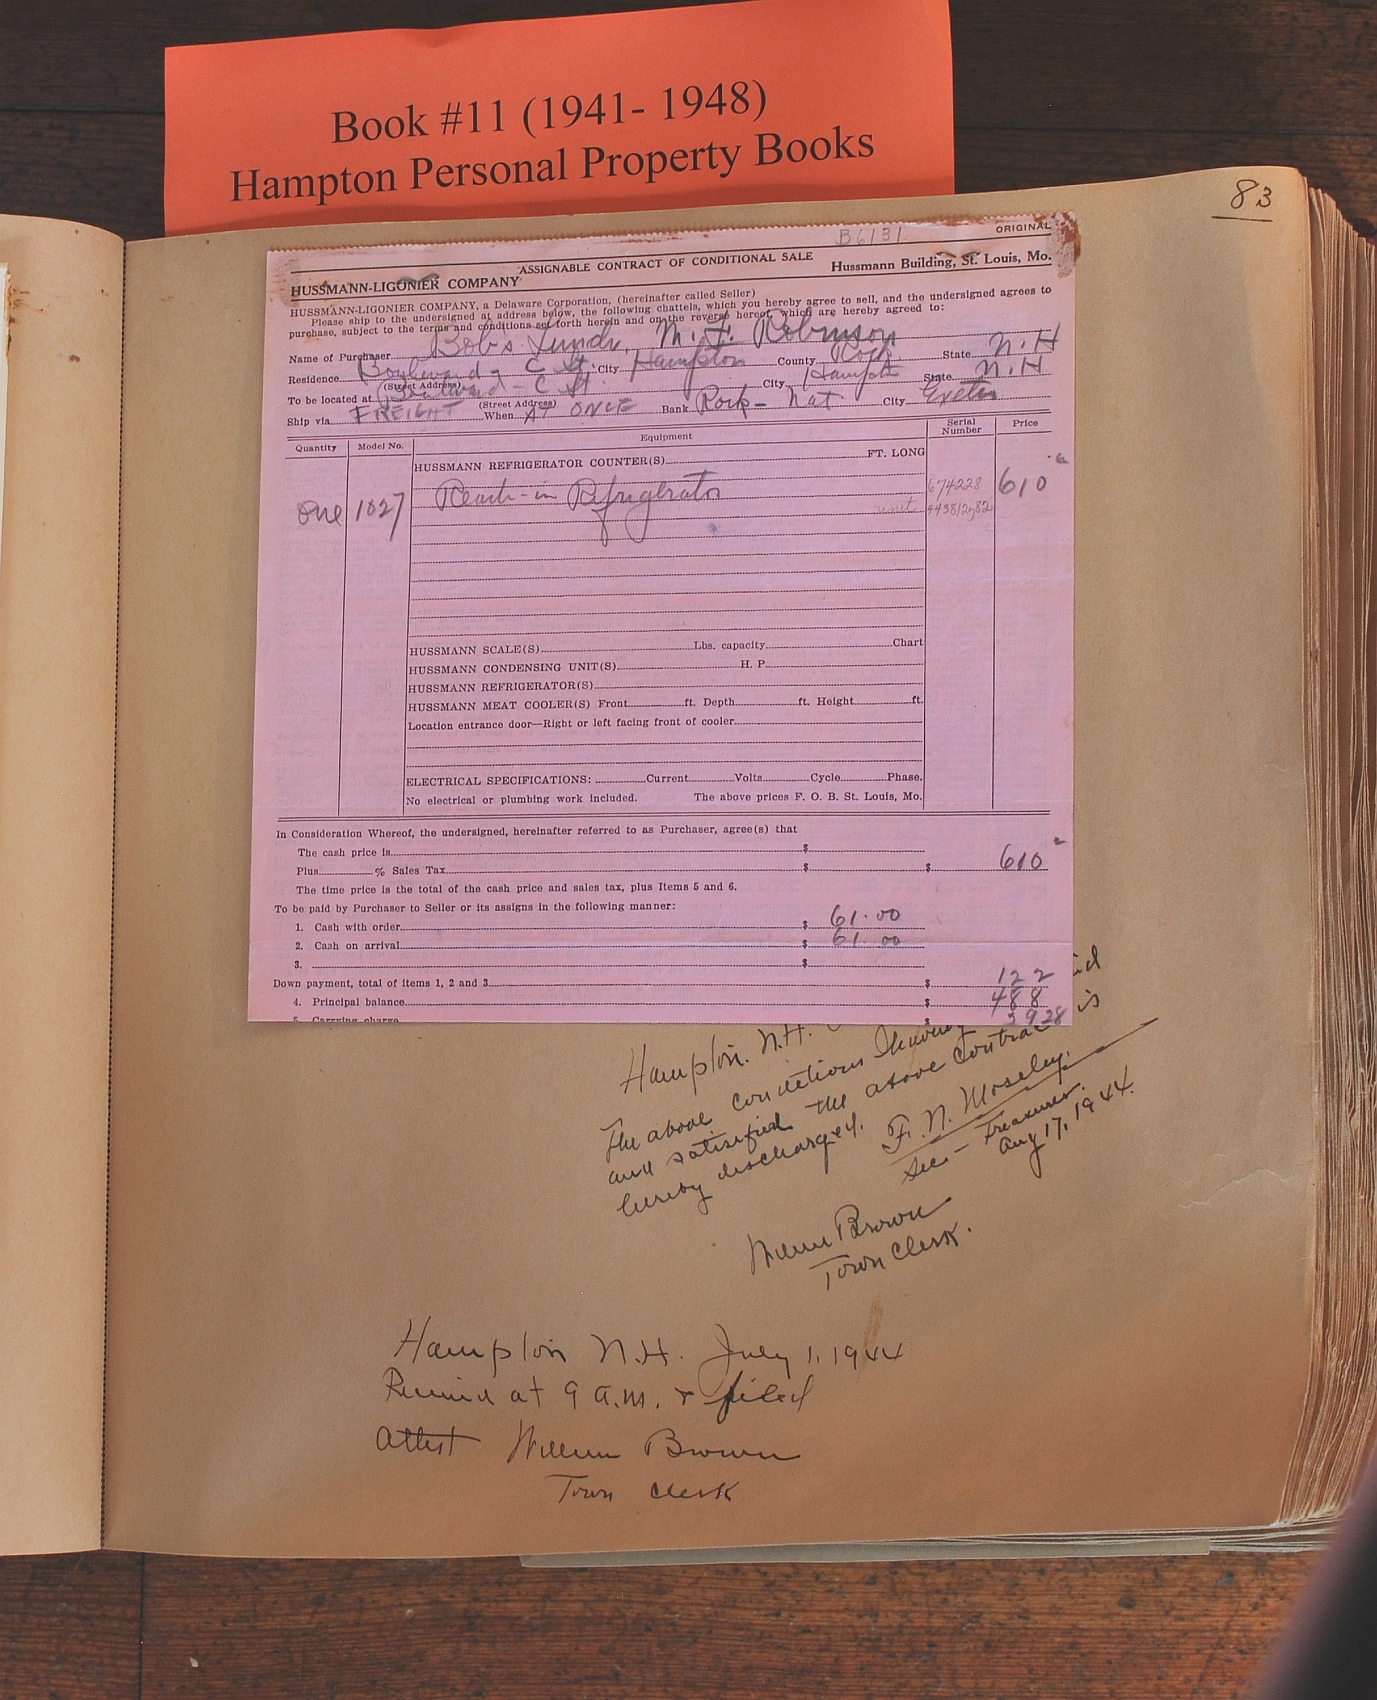 Book #11 (1941- 1948)
Hampton Personal Property Books
83
B6131
ORIGINAL
ASSIGNABLE CONTRACT OF CONDITIONAL SALE
HUSSMANN-LIGONIER COMPANY
Hussmann Building, St. Louis, Mo.
HUSSMANN-LIGONIER COMPANY, a Delaware Corporation, (hereinafter called Seller)
Please ship to the undersigned at address below, the following chattels, which you hereby agree to sell, and the undersigned agrees to
purchase, subject to the terms and conditions set forth herein and on the reverse hereof, which are hereby agreed to:
Name of Purchaser Bob's Lunch, M. F. Robinson
Residence Boulevard - C St. City Hampton County Rock State N.H
(Street Address)
To be located at Boulevard - C St. City Hampton State N.H
(Street Address)
Ship via FREIGHT When AT ONCE Bank Rock - Nat City Exeter
Quantity Model No. Equipment Serial Number Price
HUSSMANN REFRIGERATOR COUNTER(S) FT. LONG
One 1027 Reach-in Refrigerator 674228 610
unit
HUSSMANN SCALE(S) Lbs. capacity Chart
HUSSMANN CONDENSING UNIT(S) H. P.
HUSSMANN REFRIGERATOR(S)
HUSSMANN MEAT COOLER(S) Front ft. Depth ft. Height ft.
Location entrance door—Right or left facing front of cooler
ELECTRICAL SPECIFICATIONS: Current Volts Cycle Phase.
No electrical or plumbing work included. The above prices F. O. B. St. Louis, Mo.
In Consideration Whereof, the undersigned, hereinafter referred to as Purchaser, agree(s) that
The cash price is $
Plus % Sales Tax $ $ 610
The time price is the total of the cash price and sales tax, plus Items 5 and 6.
To be paid by Purchaser to Seller or its assigns in the following manner:
1. Cash with order $ 61.00
2. Cash on arrival $ 61.00
3. $
Down payment, total of items 1, 2 and 3 $ 122
4. Principal balance $ 488
5. Carrying charge $ 39.28
Hampton. N.H.
The above conditions having
and satisified the above contract is
hereby discharged.
F. N. Moseley.
Sec - Treasurer.
Aug 17, 1944.
William Brown
Town Clerk.
Hampton N.H. July 1, 1944
Received at 9 A.M. & filed
Attest William Brown
Town Clerk